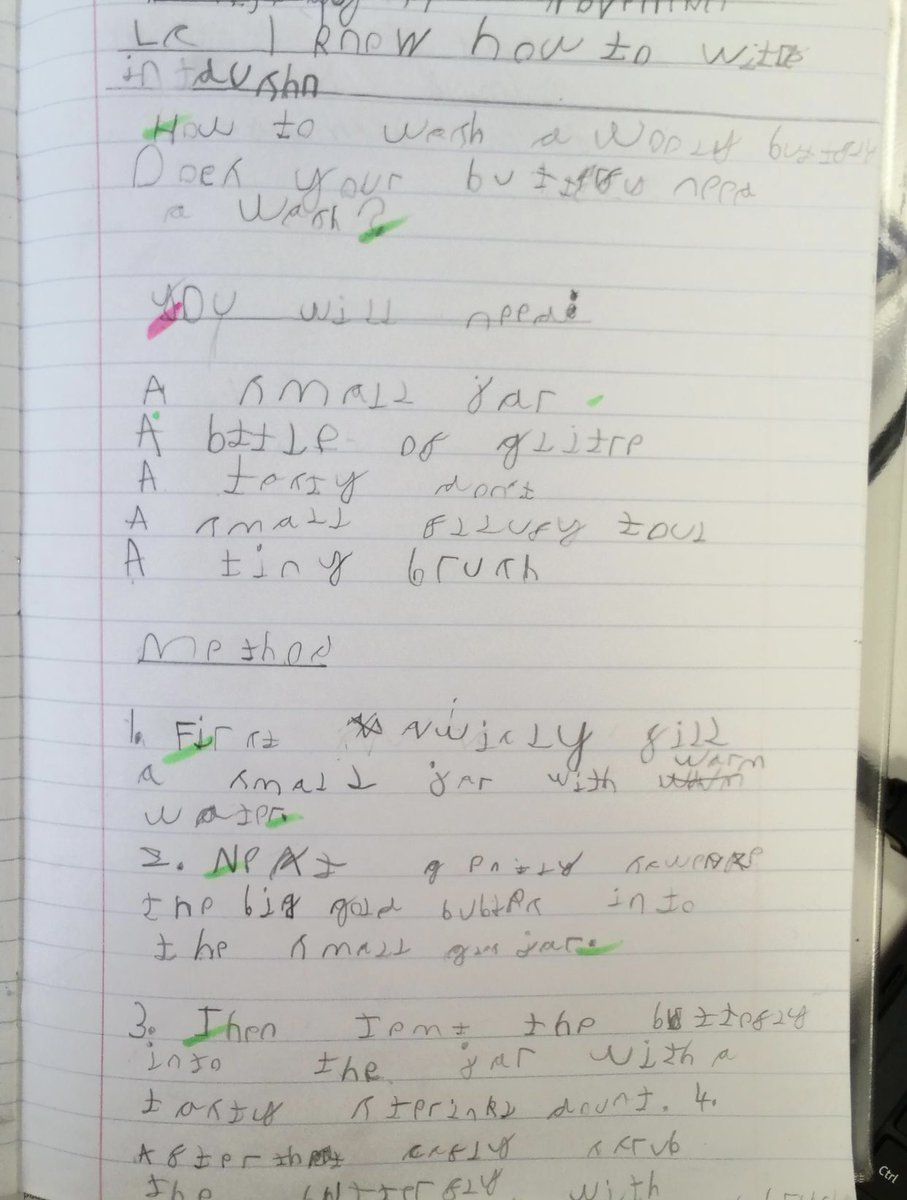 LC I know how to wite
in
How to wash a wooly
Does your need
a wash?
You will need:
A small jar.
A bttle of glitre
A testy don't
A small flluffy toul
A tiny brush
Method
1. First swiftly fill
a small jar with warm
water.
2. Next gently
the big gold bubles into
the small jar.
3. Then temt the butterfly
into the jar with a
tasty stprinkl dount. 4.
After that scrub
the butterfly with
Ctrl